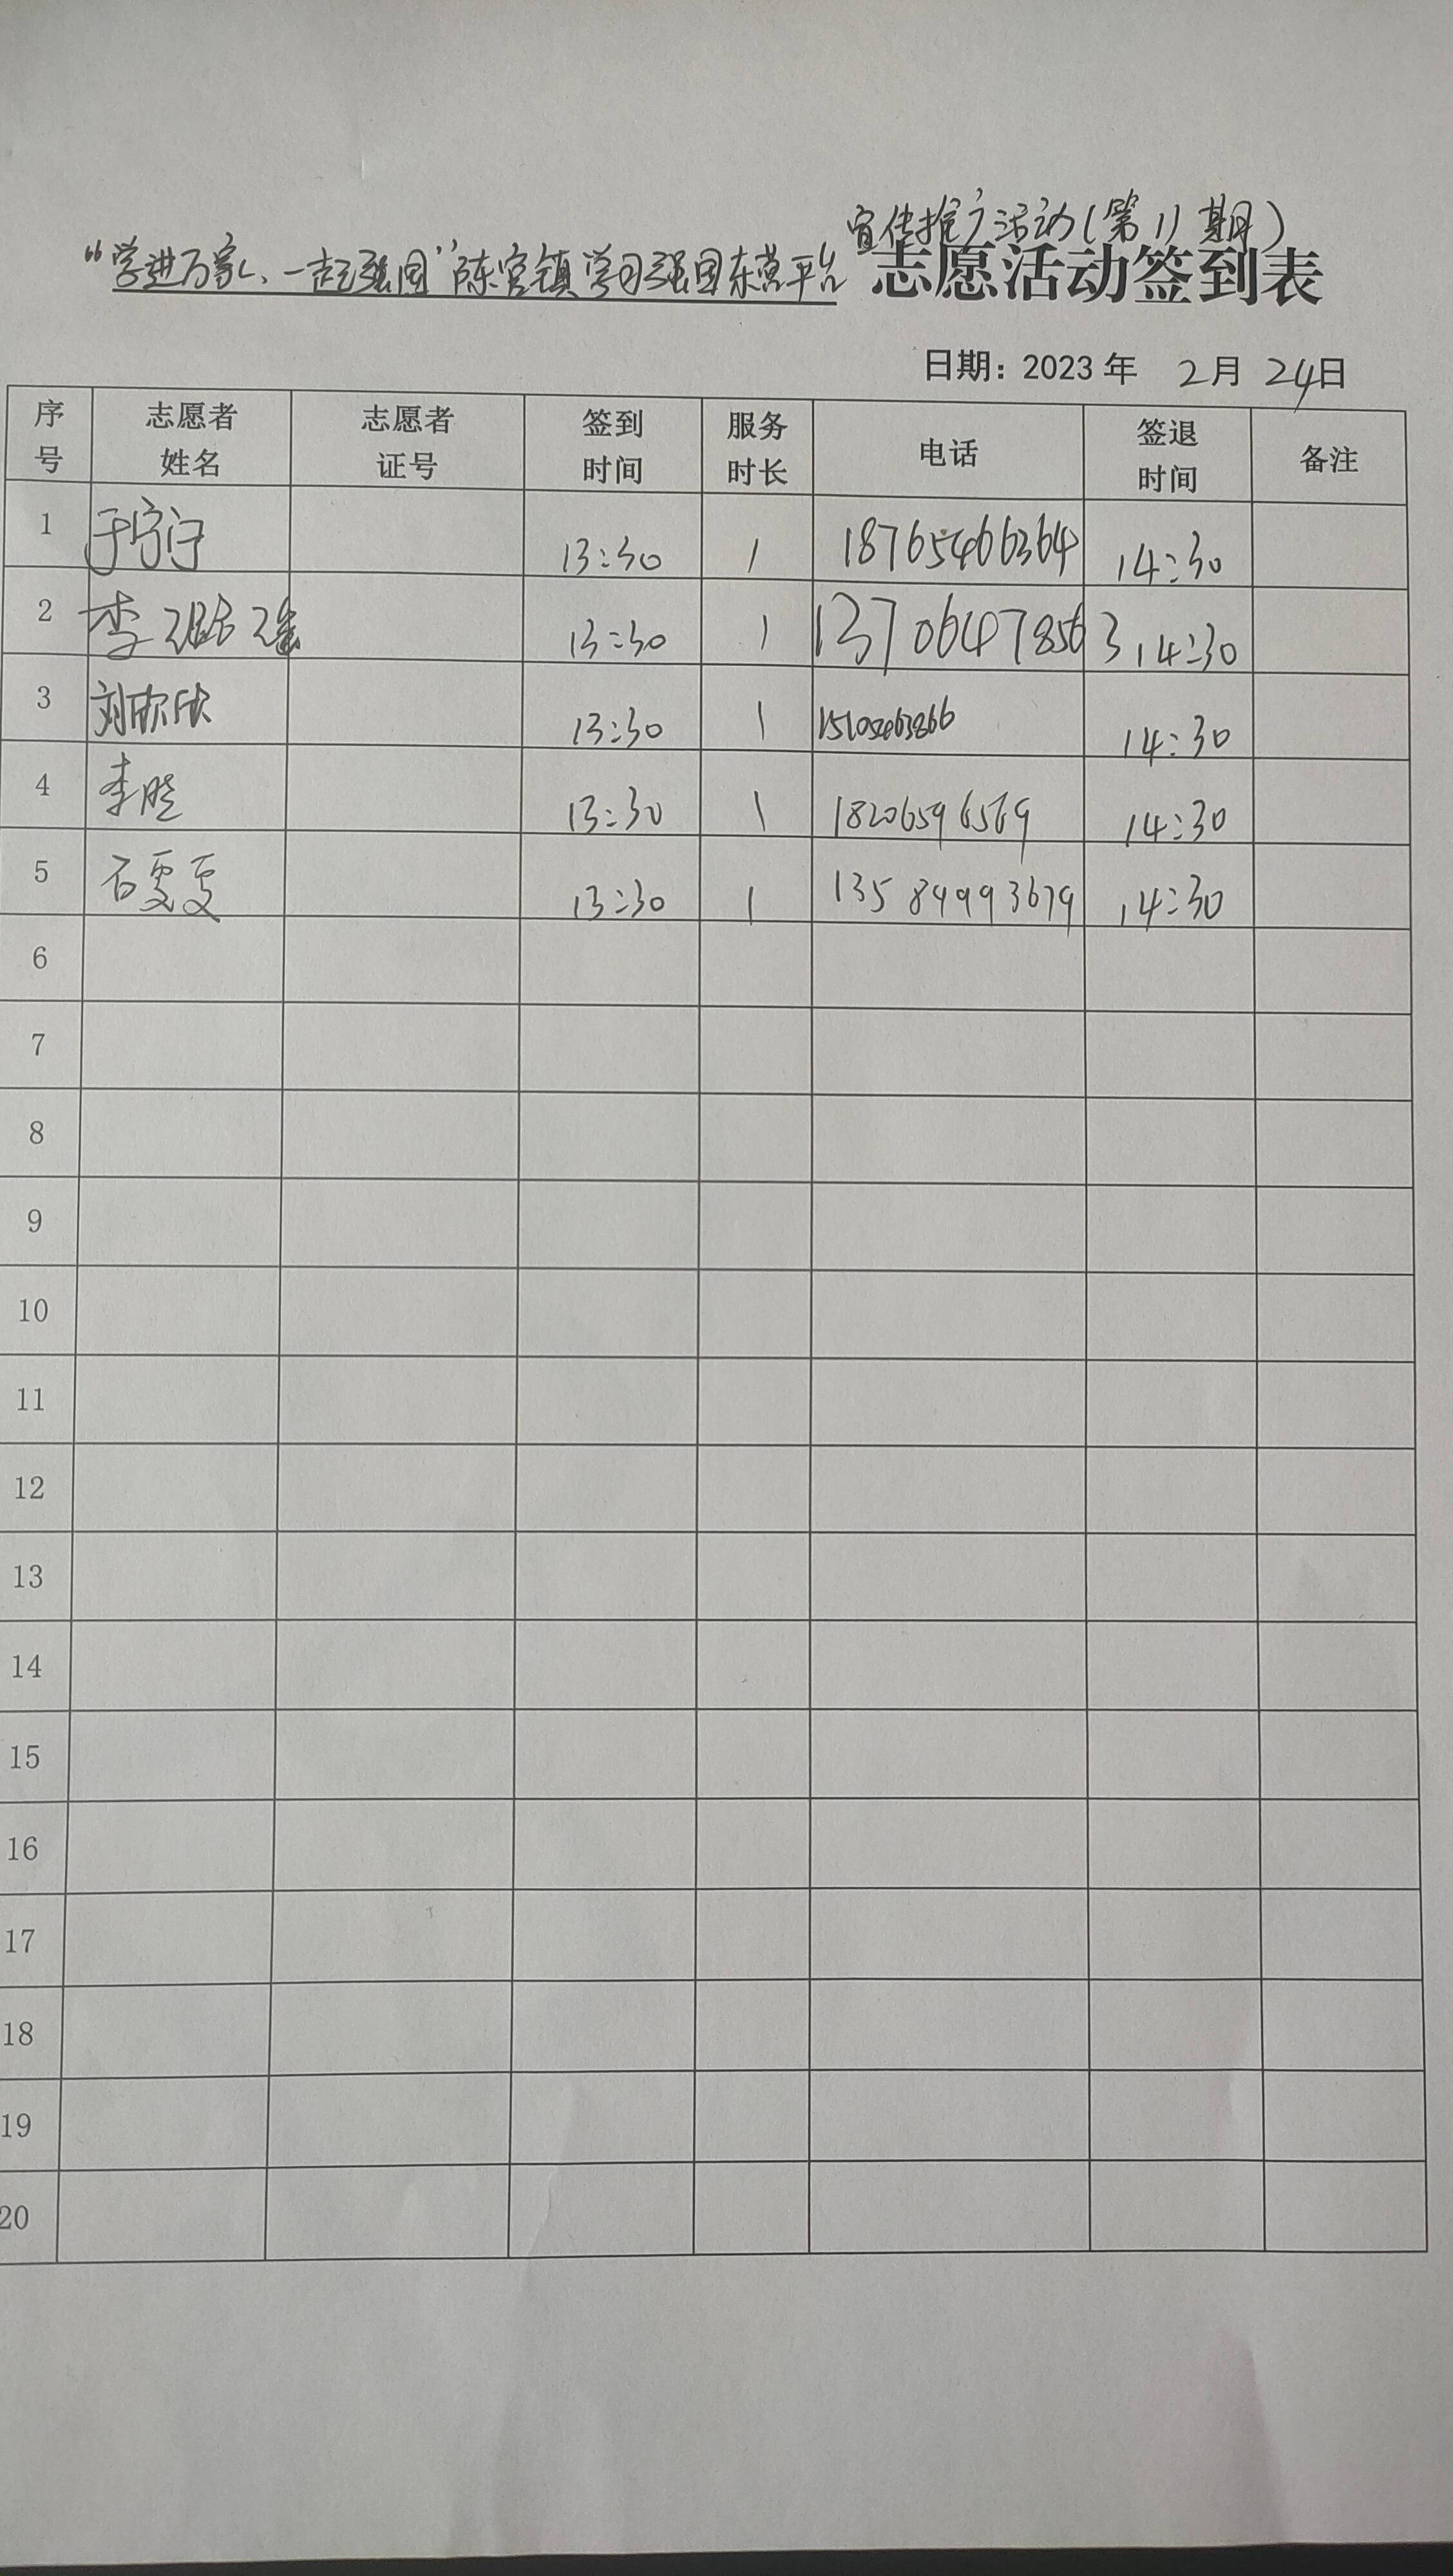 宣传推广活动(第11期)
“学进万家、一起强国”陈官镇学习强国东营平台 志愿活动签到表
日期：2023 年 2月 24日
序号 志愿者姓名 志愿者证号 签到时间 服务时长 电话 签退时间 备注
1 于宁宁 13:30 1 18765466364 14:30
2 李 瑶 13:30 1 13706478563 14:30
3 刘欣欣 13:30 1 14:30
4 李 13:30 1 18206596569 14:30
5 石雯雯 13:30 1 13584993679 14:30
6
7
8
9
10
11
12
13
14
15
16
17
18
19
20